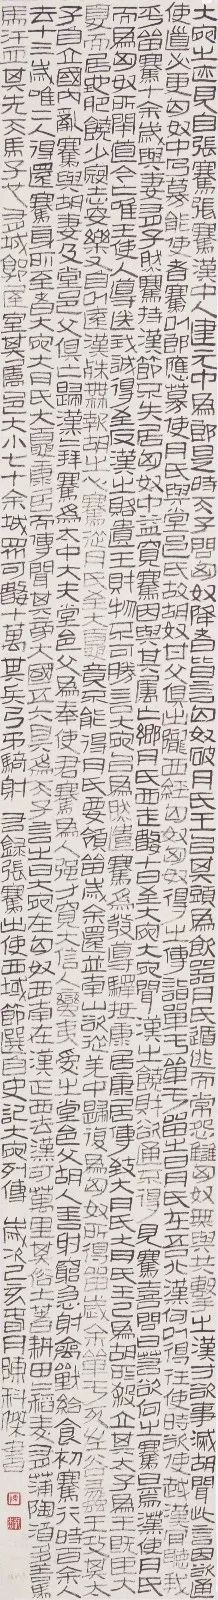 大宛之跡見自張騫張騫漢中人建元中為郎是時天子問匈奴降者皆言匈奴破月氏王以其頭為飲器月氏遁逃而常怨仇匈奴無與共擊之漢方欲事滅胡聞此言因欲通
使道必更匈奴中乃募能使者騫以郎應募使月氏與堂邑氏故胡奴甘父俱出隴西經匈奴匈奴得之傳詣單于單于留之曰月氏在吾北漢何以得往使吾欲使越漢肯聽我
乎留騫十余歲與妻有子然騫持漢節不失居匈奴中益寬騫因與其屬亡鄉月氏西走數十日至大宛大宛聞漢之饒財欲通不得見騫喜問曰若欲何之騫曰為漢使月氏
而為匈奴所閉道今亡唯王使人導送我誠得至反漢漢之賂遺王財物不可勝言大宛以為然遣騫為發導驛抵康居康居傳致大月氏大月氏王已為胡所殺立其太子為王既臣大
夏而居地肥饒少寇志安樂又自以遠漢殊無報胡之心騫從月氏至大夏竟不能得月氏要領留歲余還並南山欲從羌中歸復為匈奴所得留歲余單于死左谷蠡王攻其太
子自立國內亂騫與胡妻及堂邑父俱亡歸漢漢拜騫為太中大夫堂邑父為奉使君騫為人強力寬大信人蠻夷愛之堂邑父胡人善射窮急射禽獸給食初騫行時百余人
去十三歲唯二人得還騫身所至者大宛大月氏大夏康居而傳聞其旁大國五六具為天子言之曰大宛在匈奴西南在漢正西去漢可萬里其俗土著耕田田稻麥有蒲陶酒多善馬
馬汗血其先天馬子也有城郭屋室其屬邑大小七十余城眾可數十萬其兵弓矛騎射 右錄張騫出使西域節選自史記大宛列傳 歲次己亥 月陳科傑書